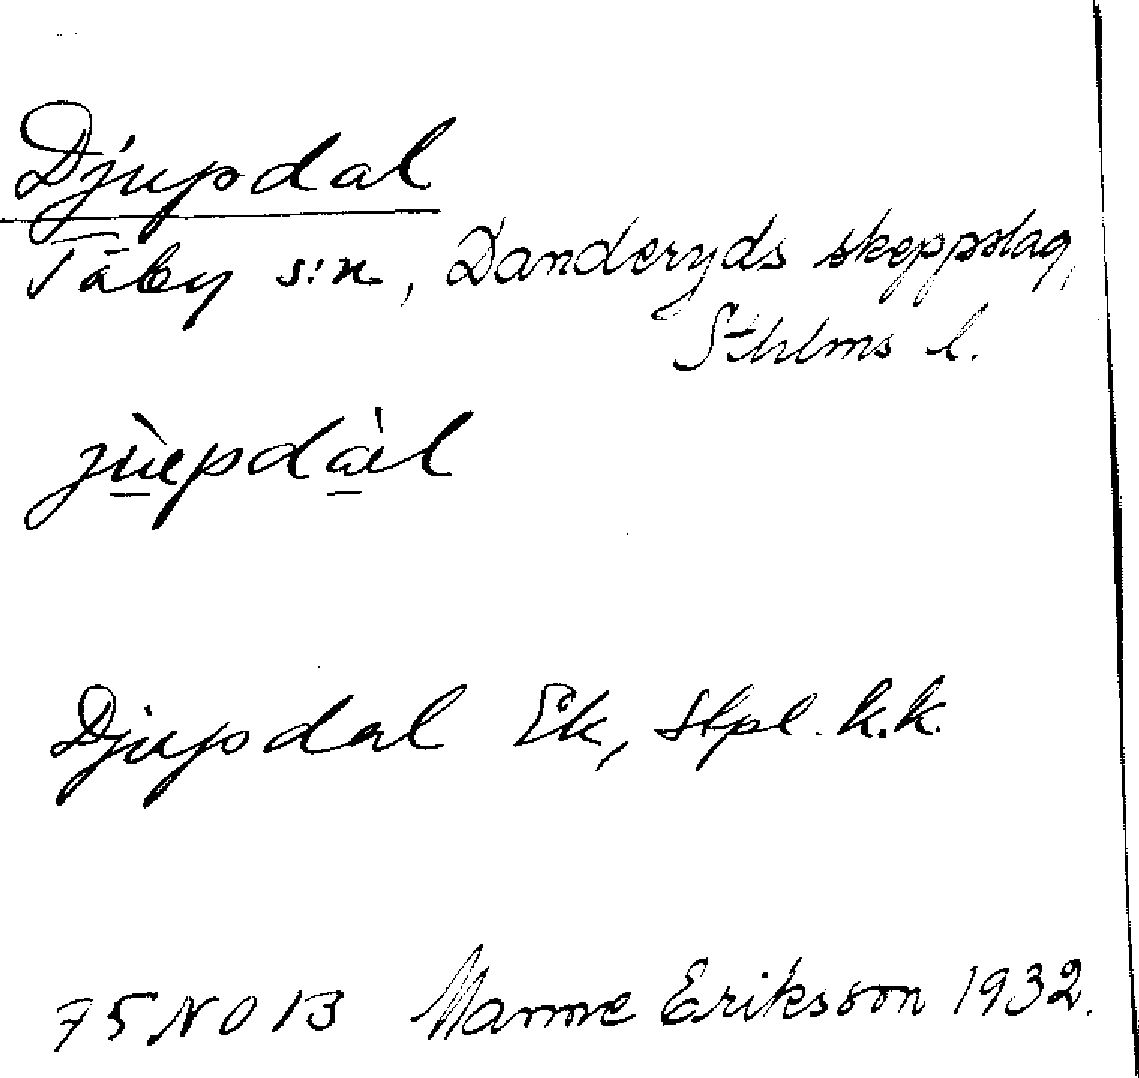 Djupdal
Täby s:n, Danderyds skeppslag,
Sthlms l.
jùpdàl
Djupdal Ek, stpl. h.k.
75 NO 13 Manne Eriksson 1932.